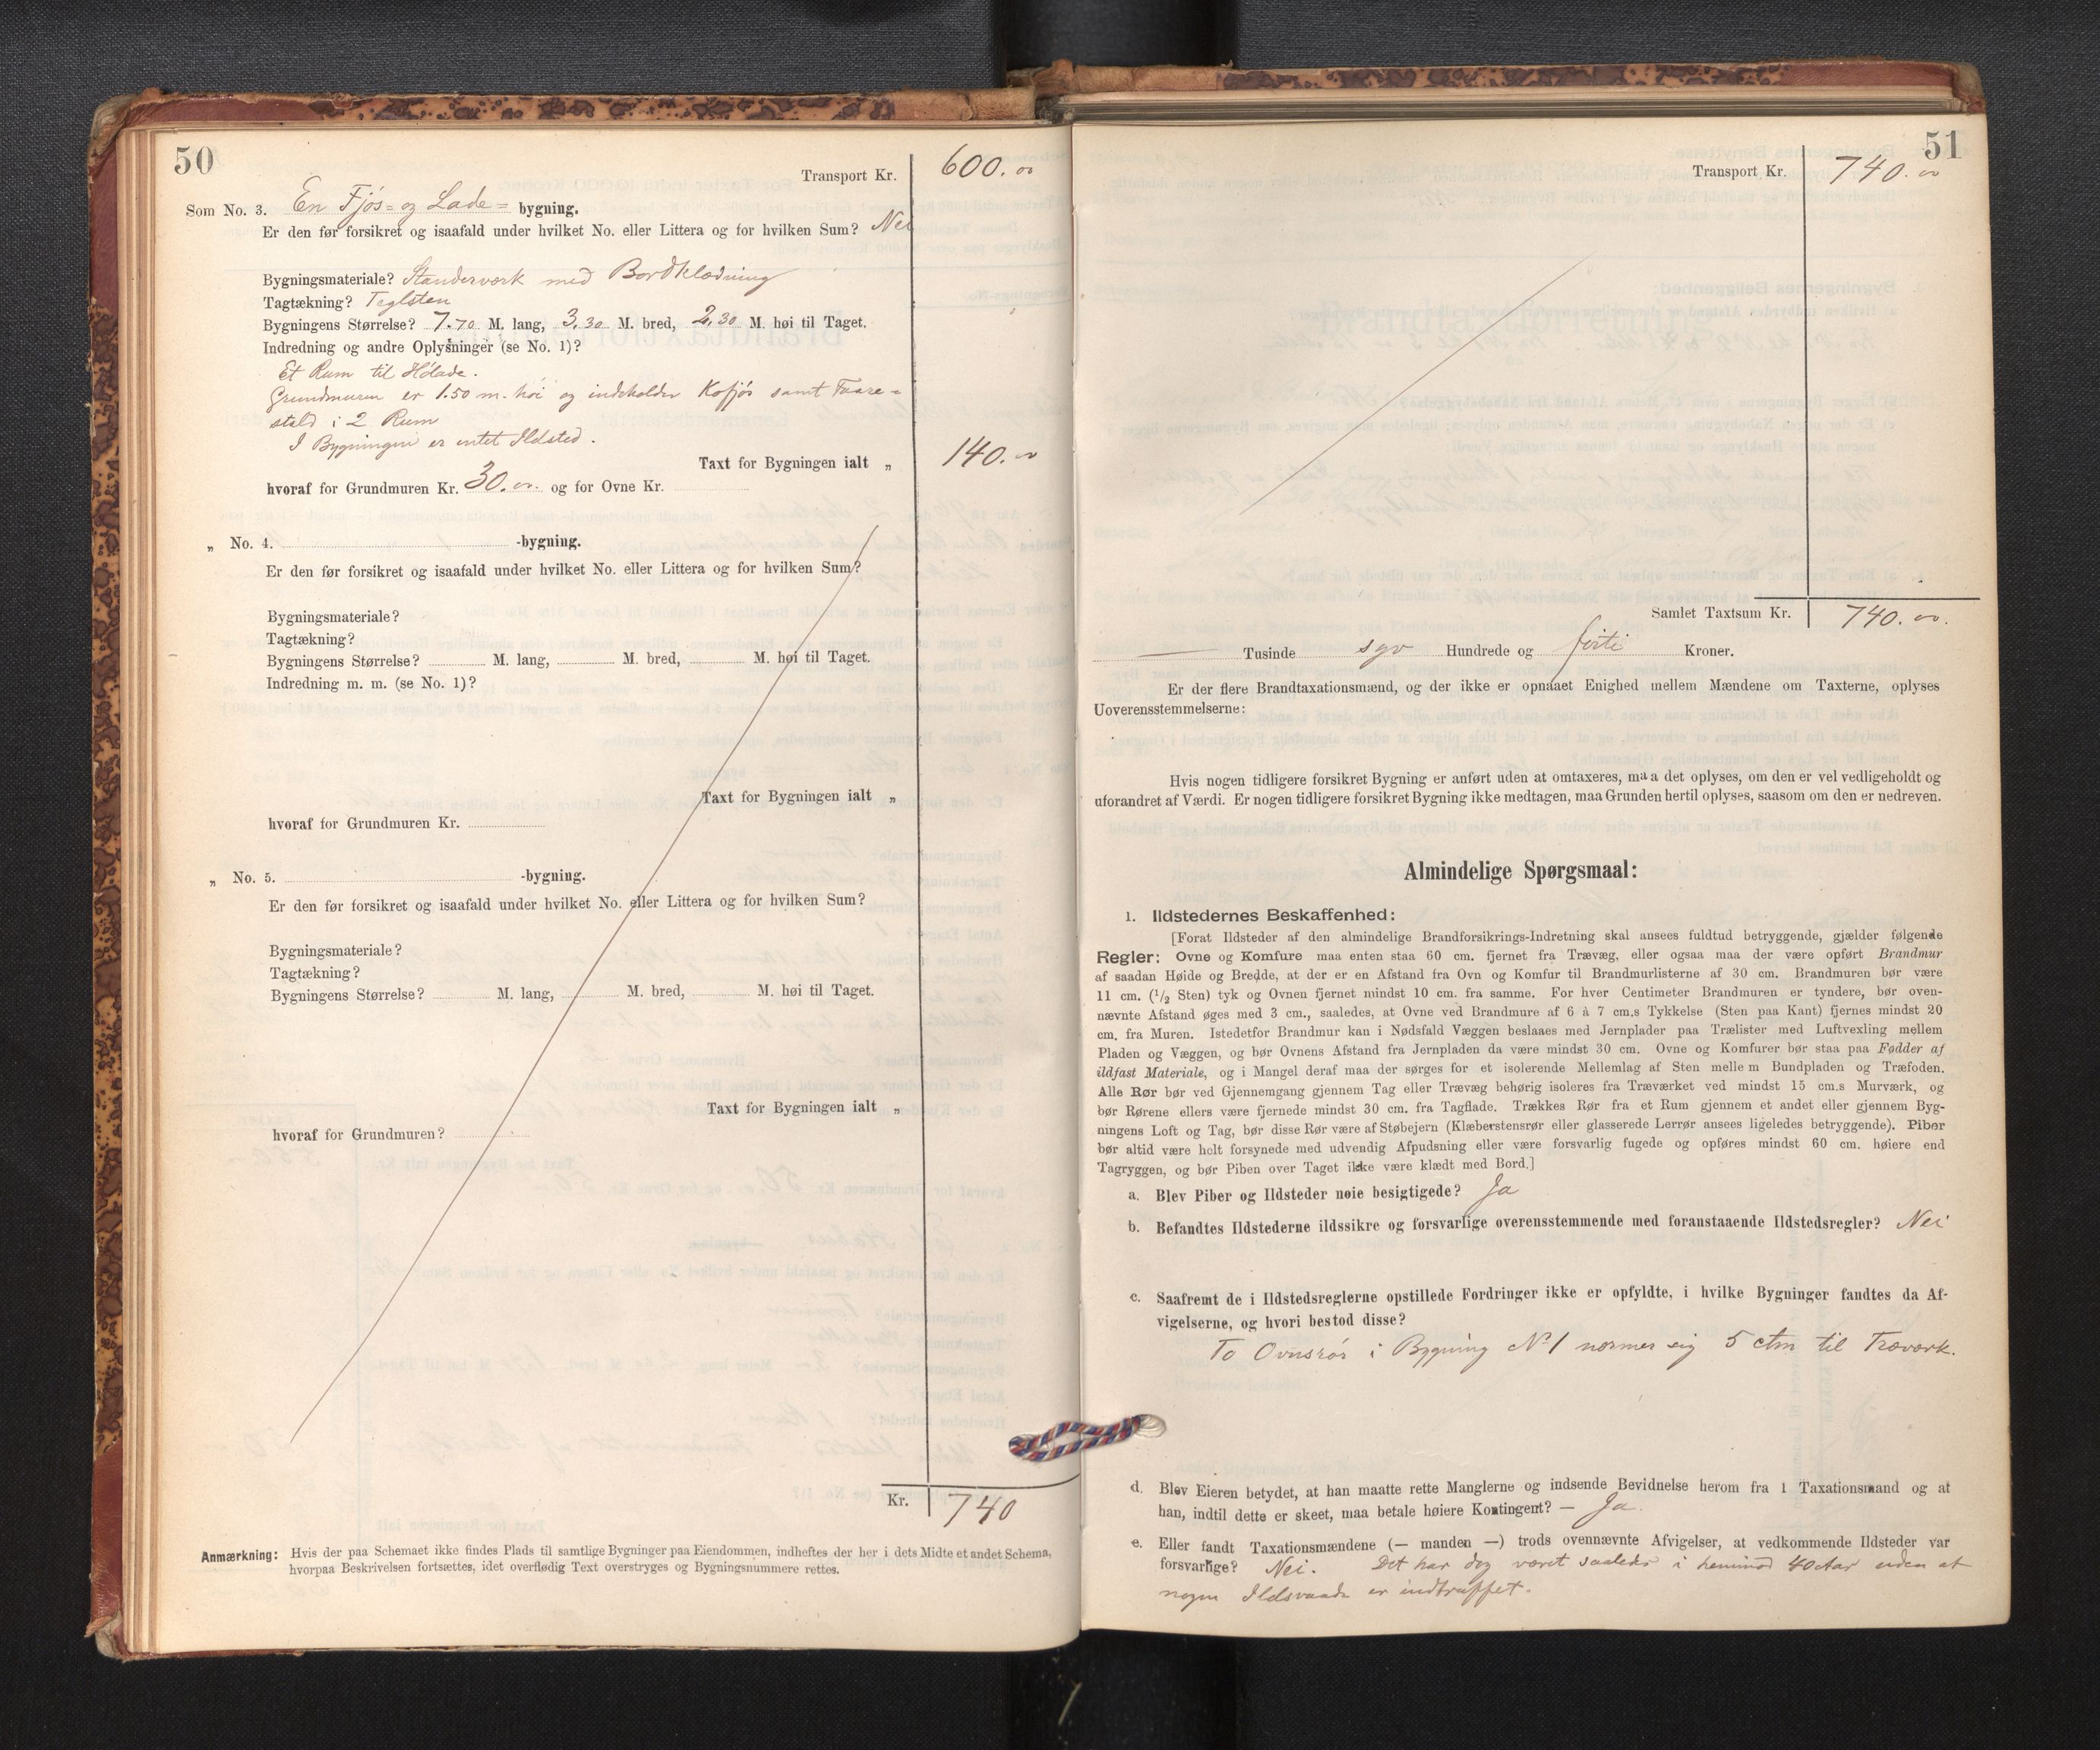 50
Transport Kr. 600.00
Som No. 3. En Fjøs- og Lade- bygning.
Er den før forsikret og isaafald under hvilket No. eller Littera og for hvilken Sum? Nei
Bygningsmateriale? Standerværk med Bordklædning
Tagtækning? Teglsten
Bygningens Størrelse? 7.70 M. lang, 3,30 M. bred, 2,30 M. høi til Taget.
Indredning og andre Oplysninger (se No. 1)?
Et Rum til Hølade.
Grundmuren er 1.50 m. høi og indeholder Kofjøs samt Faare-
stald i 2 Rum
I Bygningen er intet Ildsted.
Taxt for Bygningen ialt „ 140.00
hvoraf for Grundmuren Kr. 30.00. og for Ovne Kr.
„ No. 4. -bygning.
Er den før forsikret og isaafald under hvilket No. eller Littera og for hvilken Sum?
Bygningsmateriale?
Tagtækning?
Bygningens Størrelse? M. lang, M. bred, M. høi til Taget.
Indredning m. m. (se No. 1)?
Taxt for Bygningen ialt „
hvoraf for Grundmuren Kr.
„ No. 5. -bygning.
Er den før forsikret og isaafald under hvilket No. eller Littera og for hvilken Sum?
Bygningsmateriale?
Tagtækning?
Bygningens Størrelse? M. lang, M. bred, M. høi til Taget.
Taxt for Bygningen ialt „
hvoraf for Grundmuren?
Kr. 740
Anmærkning: Hvis der paa Schemaet ikke findes Plads til samtlige Bygninger paa Eiendommen, indheftes der her i dets Midte et andet Schema,
hvorpaa Beskrivelsen fortsættes, idet overflødig Text overstryges og Bygningsnummere rettes.
51
Transport Kr. 740.00
Samlet Taxtsum Kr. 740.00.
— Tusinde syv Hundrede og førti Kroner.
Er der flere Brandtaxationsmænd, og der ikke er opnaaet Enighed mellem Mændene om Taxterne, oplyses
Uoverensstemmelserne:
Hvis nogen tidligere forsikret Bygning er anført uden at omtaxeres, maa det oplyses, om den er vel vedligeholdt og
uforandret af Værdi. Er nogen tidligere forsikret Bygning ikke medtagen, maa Grunden hertil oplyses, saasom om den er nedreven.
Almindelige Spørgsmaal:
1. Ildstedernes Beskaffenhed:
[Forat Ildsteder af den almindelige Brandforsikrings-Indretning skal ansees fuldtud betryggende, gjælder følgende
Regler: Ovne og Komfure maa enten staa 60 cm. fjernet fra Trævæg, eller ogsaa maa der være opført Brandmur
af saadan Høide og Bredde, at der er en Afstand fra Ovn og Komfur til Brandmurlisterne af 30 cm. Brandmuren bør være
11 cm. (1/2 Sten) tyk og Ovnen fjernet mindst 10 cm. fra samme. For hver Centimeter Brandmuren er tyndere, bør oven-
nævnte Afstand øges med 3 cm., saaledes, at Ovne ved Brandmure af 6 à 7 cm.s Tykkelse (Sten paa Kant) fjernes mindst 20
cm. fra Muren. Istedetfor Brandmur kan i Nødsfald Væggen beslaaes med Jernplader paa Trælister med Luftvexling mellem
Pladen og Væggen, og bør Ovnens Afstand fra Jernpladen da være mindst 30 cm. Ovne og Komfurer bør staa paa Fødder af
ildfast Materiale, og i Mangel deraf maa der sørges for et isolerende Mellemlag af Sten mellem Bundpladen og Træfoden.
Alle Rør bør ved Gjennemgang gjennem Tag eller Trævæg behørig isoleres fra Træværket ved mindst 15 cm.s Murværk, og
bør Rørene ellers være fjernede mindst 30 cm. fra Tagflade. Trækkes Rør fra et Rum gjennem et andet eller gjennem Byg-
ningens Loft og Tag, bør disse Rør være af Støbejern (Klæberstensrør eller glasserede Lerrør ansees ligeledes betryggende). Piber
bør altid være helt forsynede med udvendig Afpudsning eller være forsvarlig fugede og opføres mindst 60 cm. høiere end
Tagryggen, og bør Piben over Taget ikke være klædt med Bord.]
a. Blev Piber og Ildsteder nøie besigtigede? Ja
b. Befandtes Ildstederne ildssikre og forsvarlige overensstemmende med foranstaaende Ildstedsregler? Nei
c. Saafremt de i Ildstedsreglerne opstillede Fordringer ikke er opfyldte, i hvilke Bygninger fandtes da Af-
vigelserne, og hvori bestod disse?
To Ovnsrør i Bygning No 1 nærmer sig 5 ctm til Træværk.
d. Blev Eieren betydet, at han maatte rette Manglerne og indsende Bevidnelse herom fra 1 Taxationsmand og at
han, indtil dette er skeet, maa betale høiere Kontingent? — Ja.
e. Eller fandt Taxationsmændene (— manden —) trods ovennævnte Afvigelser, at vedkommende Ildsteder var
forsvarlige? Nei. Det har dog været saaledes i henimod 40 Aar uden at
nogen Ildsvaade er indtruffet.